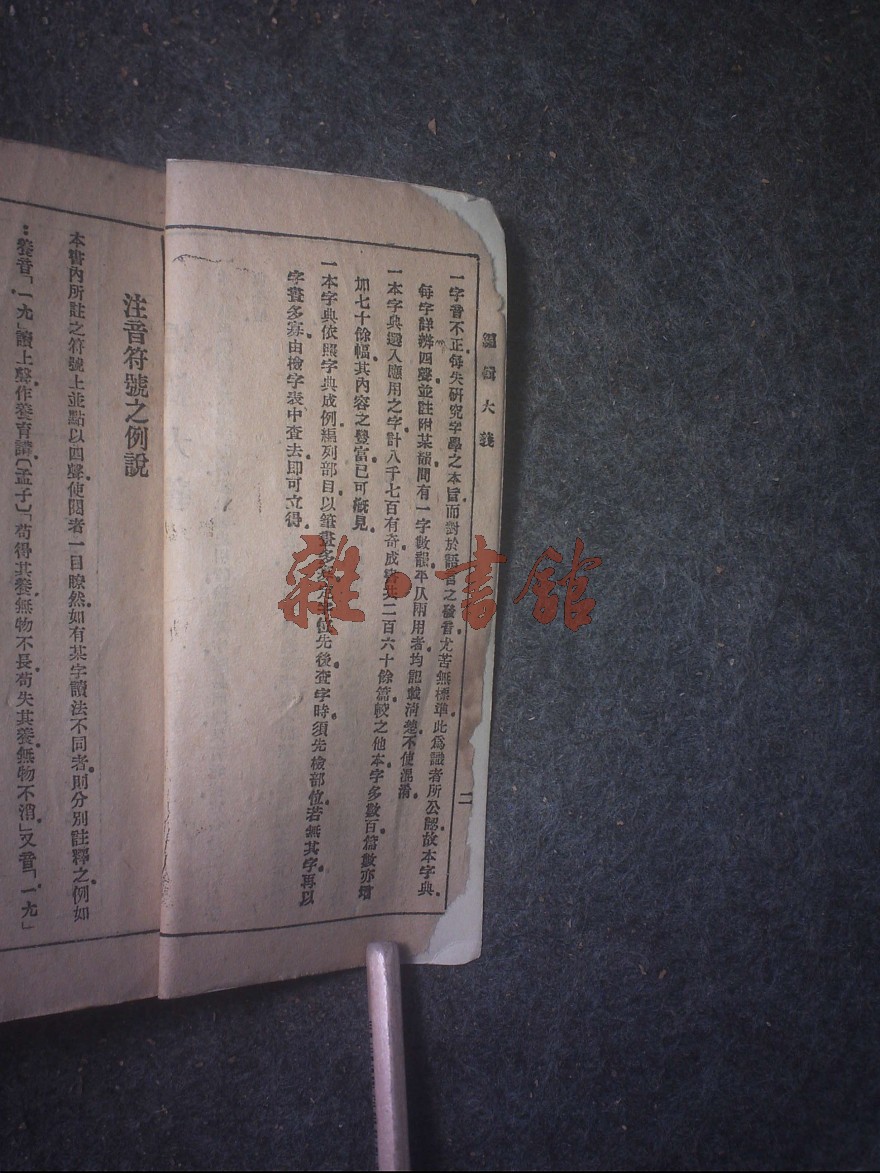 編輯大綱
二
一字音不正每失研究字學之本旨而對於語言之發音尤苦無標準此爲識者所公認故本字典
每字詳辨四聲並註附某韻間有一字數韻平仄兩用者均記載清楚不使混淆
一本字典選入應用之字計八千七百有奇成
二百六十餘篇較之他本字多數百篇數亦增
加七十餘幅其內容之豐富已可概見
一本字典依照字典成例編列部目以筆畫多
位先後查字時須先檢部位若無其字再以
字畫多寡由檢字表中查去即可立得
注音符號之例說
本書內所註之符號上並點以四聲使閱者一目瞭然如有某字讀法不同者則分別註釋之例如
：養音「ㄧㄤ」讀上聲作養育講（孟子）「苟得其養無物不長苟失其養無物不消」又音「ㄧㄤ」
雜·書館